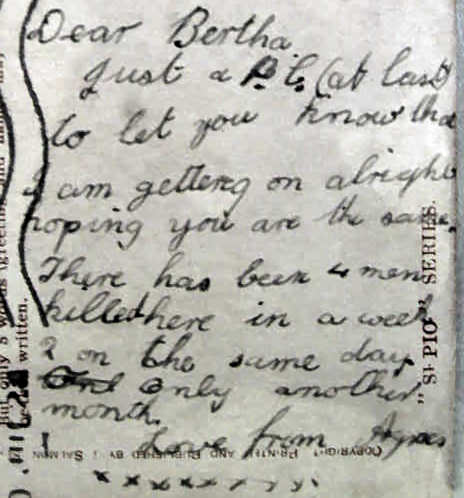 Dear Bertha
Just a P.C. (at last)
to let you know tha
I am getting on alright
hoping you are the same.
There has been 4 men
killed here in a week
2 on the same day
Only another
month.
Love from Agnes
x x x x x x x
"St PIO" SERIES.
COPYRIGHT PRINTED AND PUBLISHED BY J SALMON
written.